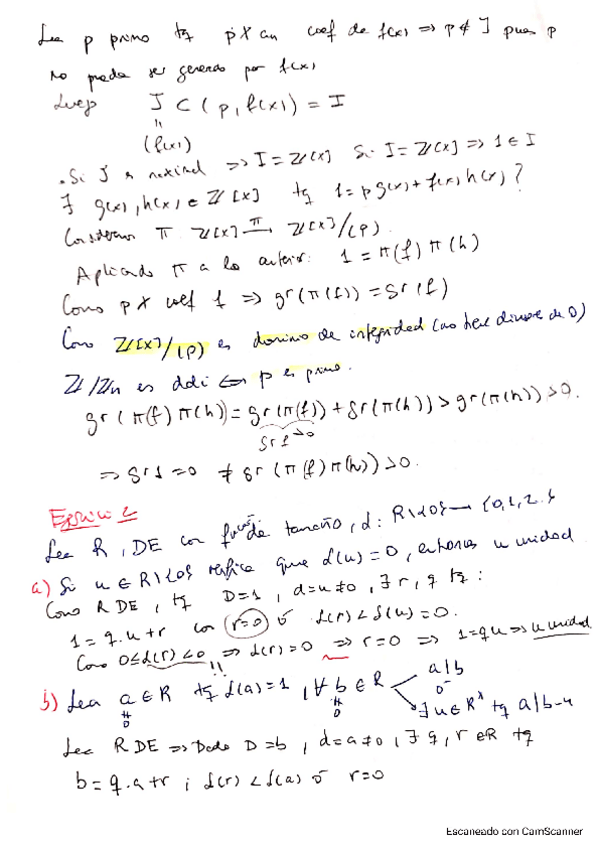 Sea p primo tq p∤ an coef de f(x) ⇒ p∉J pues p
no puede ser generado por f(x)
Luego J ⊂ (p, f(x)) = I
"
(f(x))
. Si J es maximal ⇒ I = ℤ[x] Si I = ℤ[x] ⇒ 1 ∈ I
∃ g(x), h(x) ∈ ℤ[x] tq 1 = p g(x) + f(x) h(x) ?
Consideramos π: ℤ[x] →π ℤ[x]/(p).
Aplicando π a lo anterior: 1 = π(f) π(h)
Como p∤ coef f ⇒ gr(π(f)) = gr(f)
Como ℤ[x]/(p) es dominio de integridad (no tiene divisores de 0)
ℤ/ℤn es ddi ⇔ p es primo.
gr(π(f)π(h)) = gr(π(f)) + gr(π(h)) > gr(π(h)) > 0.
gr f > 0
⇒ gr 1 = 0 ≠ gr(π(f)π(h)) > 0.
Ejercicio 2
Sea R, DE con función de tamaño, d: R\{0} → {0,1,2..}
a) Si u ∈ R\{0} verifica que d(u) = 0, entonces u unidad
Como R DE, tq D=1, d=u≠0, ∃ r, q tq:
1 = q.u + r con r=0 ó d(r) < d(u) = 0.
Como 0 ≤ d(r) < 0 ⇒ d(r) = 0 ⇒ r=0 ⇒ 1=qu ⇒ u unidad
!!
b) Sea a ∈ R tq d(a) = 1, ∀ b ∈ R a|b
≠ 0 ≠ 0 ó
∃ u ∈ Rˣ tq a|b-u
Sea R DE ⇒ Dado D=b, d=a≠0, ∃ q, r ∈ R tq
b = q.a + r ; d(r) < d(a) ó r=0
Escaneado con CamScanner